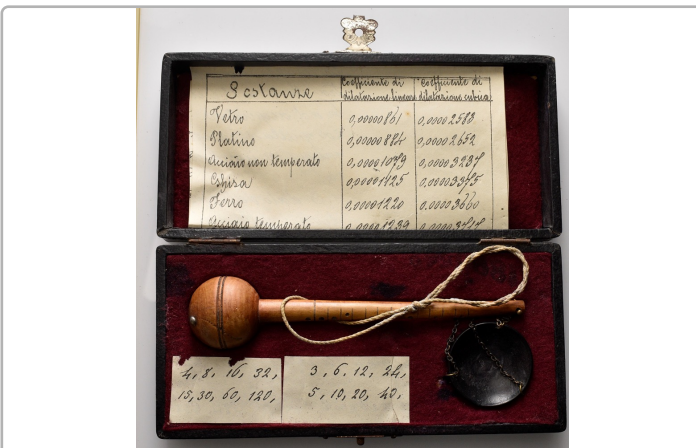 Sostanze
Coefficiente di dilatazione lineare
Coefficiente di dilatazione cubica
Vetro 0,00000861 0,00002583
Platino 0,00000884 0,00002652
Acciaio non temperato 0,00001079 0,00003237
Ghisa 0,00001125 0,00003375
Ferro 0,00001220 0,00003660
Acciaio temperato 0,00001239 0,00003717
4, 8, 16, 32,
15, 30, 60, 120,
3, 6, 12, 24,
5, 10, 20, 40,